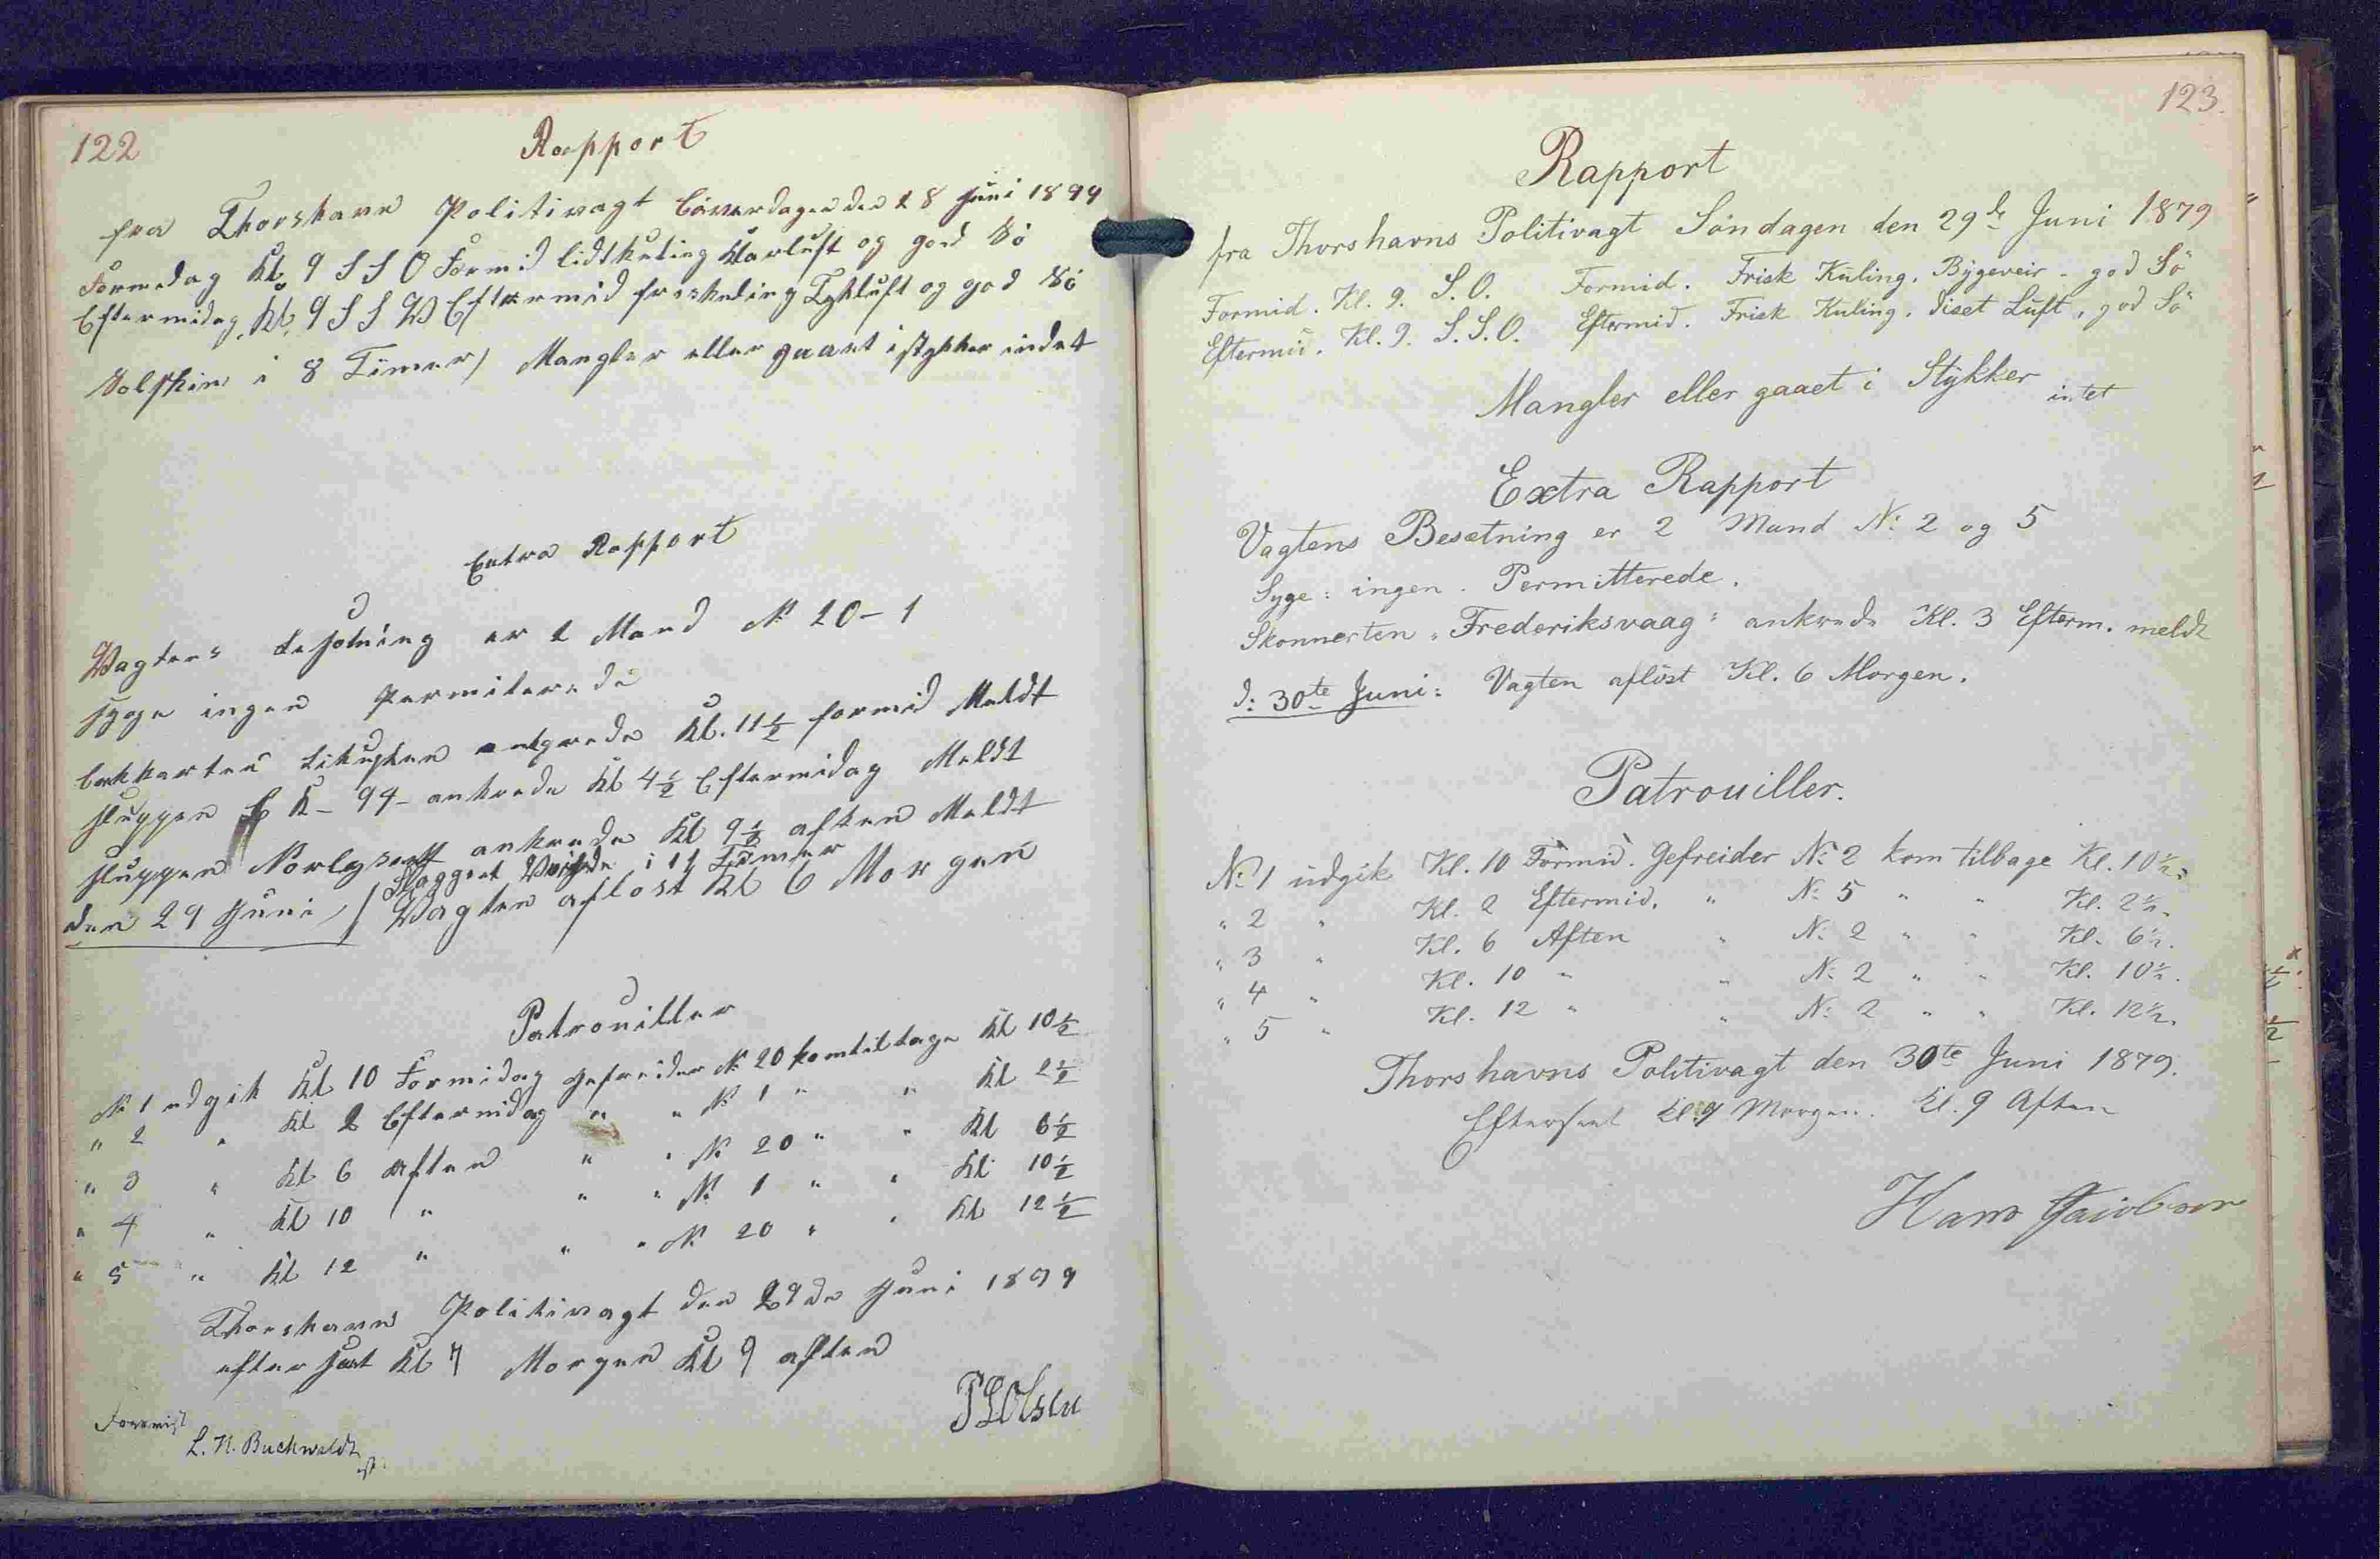 122
Rapport
fra Thorshavns Politivagt Löverdagen den 28 Juni 1879
Formedag Kl. 9 S S O Formid lidt kuling Klarluft og god Sö
Eftermidag Kl. 9 S S W Eftermid friskuling Tykluft og god Sö
Solskin i 8 Timer / Mangler eller gaaet i stykker indet
Extra Rapport
Vagtens Besotning er 2 Mand No 20 - 1
syge ingen Permiterede
ankrede Kl. 11½ formid Meldt
sluppen K - 94 - ankrede Kl 4½ Eftermidag Meldt
sluppen Norlyset ankrede Kl 9½ aften Meldt
Flagget Veiede i 11 Timer
den 29 Juni / Vagten aflost Kl 6 Morgen
Patrouiller
No 1 udgik Kl 10 Formidag gefreider No 20 kom tilbage Kl 10½
" 2 " Kl 2 Eftermidag " " No 1 " " Kl 2½
" 3 " Kl 6 aften " " No 20 " " Kl 6½
" 4 " Kl 10 " " " No 1 " " Kl 10½
" 5 " Kl 12 " " " No 20 " " Kl 12½
Thorshavns Politivagt den 29de Juni 1879
efterseet Kl 7 Morgen Kl 9 aften
Forevist
L. N. Buchwaldt
Olsen
123.
Rapport
fra Thorshavns Politivagt Söndagen den 29de Juni 1879
Formid. Kl. 9. S.O. Formid. Frisk Kuling, Bygeveir - god Sö
Eftermid. Kl. 9. S.S.O. Eftermid. Frisk Kuling, diset Luft, god Sö
Mangler eller gaaet i Stykker intet
Extra Rapport
Vagtens Besætning er 2 Mand No 2 og 5
Syge: ingen. Permitterede.
Skonnerten "Frederiksvaag" ankrede Kl. 3 Efterm. meldt
d: 30te Juni: Vagten aflöst Kl. 6 Morgen.
Patrouiller.
No 1 udgik Kl. 10 Formid. Gefreider No 2 kom tilbage Kl. 10½.
" 2 " Kl. 2 Eftermid. " No 5 " " Kl. 2½.
" 3 " Kl. 6 Aften " No 2 " " Kl. 6½.
" 4 " Kl. 10 " " No 2 " " Kl. 10½.
" 5 " Kl. 12 " " No 2 " " Kl. 12½.
Thorshavns Politivagt den 30te Juni 1879.
Efterseet Kl. 7 Morgen. Kl. 9 Aften
Hans Jacobsen